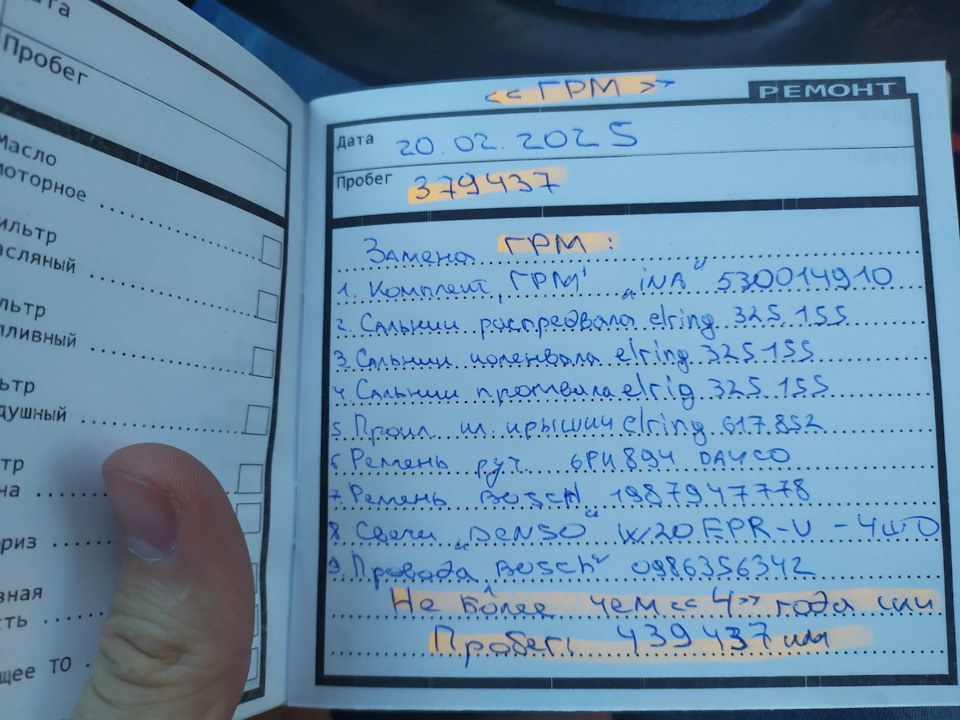 ата
Пробег
Масло
моторное
ильтр
асляный
льтр
пливный
ьтр
душный
тр
на
риз
вная
сть
щее ТО
<< ГРМ >>
РЕМОНТ
Дата 20.02.2025
Пробег 379437
Замена ГРМ :
1. Комплект "ГРМ" "iNA" 530014910
2. Сальник распредвала elring 325 155
3. Сальник коленвала elring 325 155
4. Сальник промвала elrig 325 155
5. Прокл. кл. крышки elring 617.852
6. Ремень руч. 6PK894 DAYCO
7. Ремень BOSCH 1987947778
8. Свечи "DENSO" W20EPR-U - 4шт
9. Провода "BOSCH" 0986356342
Не более чем << 4 >> года или
Пробег: 439437 км